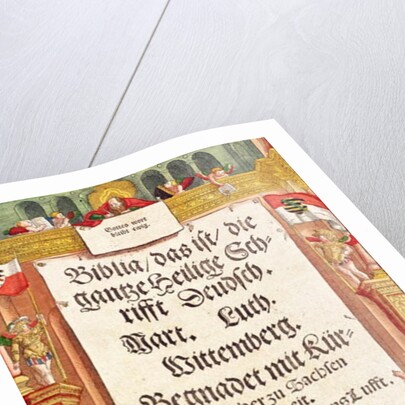 Gottes wort
bleibt ewig.
Biblia/ das ist/ die
gantze Heilige Sch-
rifft Deudsch.
Mart. Luth.
Wittemberg.
Begnadet mit Kür-
zu Sachsen
Lufft.